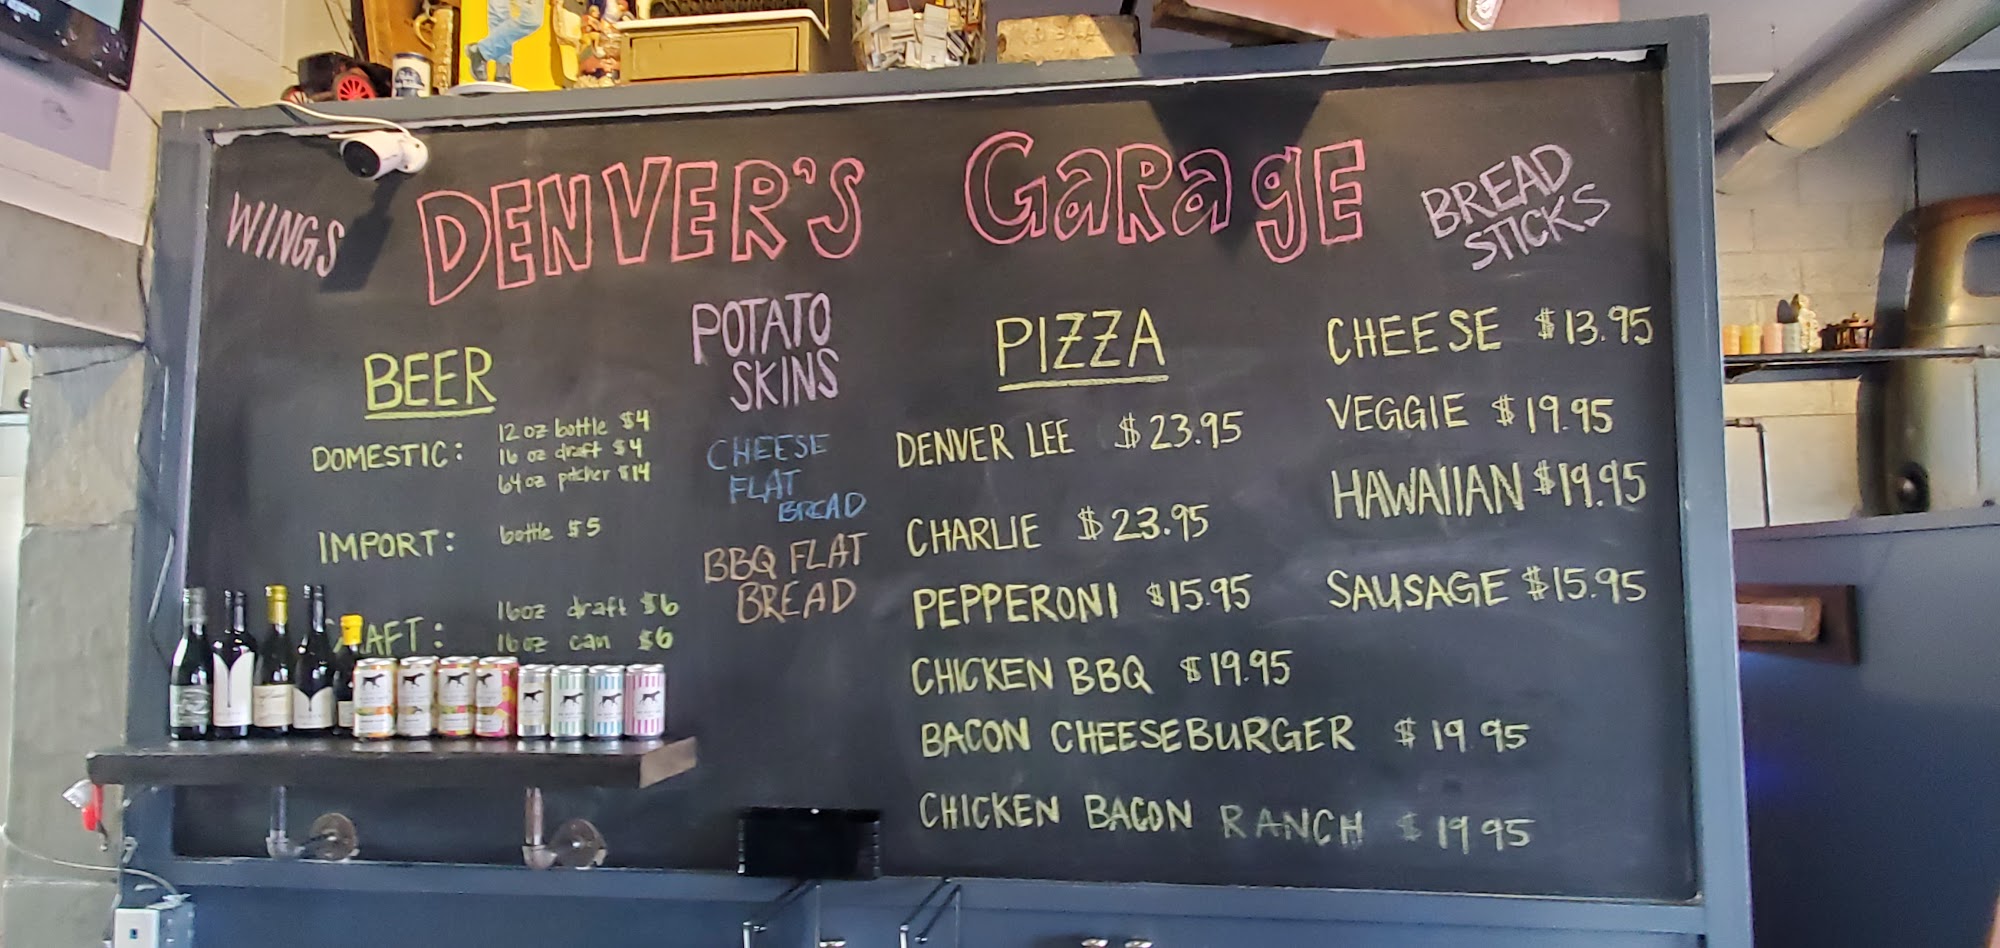 DENVER'S GARAGE
WINGS
BREAD
STICKS
BEER
DOMESTIC: 12 oz bottle $4
16 oz draft $4
64 oz pitcher $14
IMPORT: bottle $5
AFT: 16oz draft $6
16oz can $6
POTATO
SKINS
CHEESE
FLAT
BREAD
BBQ FLAT
BREAD
PIZZA
DENVER LEE $23.95
CHARLIE $23.95
PEPPERONI $15.95
CHICKEN BBQ $19.95
BACON CHEESEBURGER $19.95
CHICKEN BACON RANCH $19.95
CHEESE $13.95
VEGGIE $19.95
HAWAIIAN $19.95
SAUSAGE $15.95